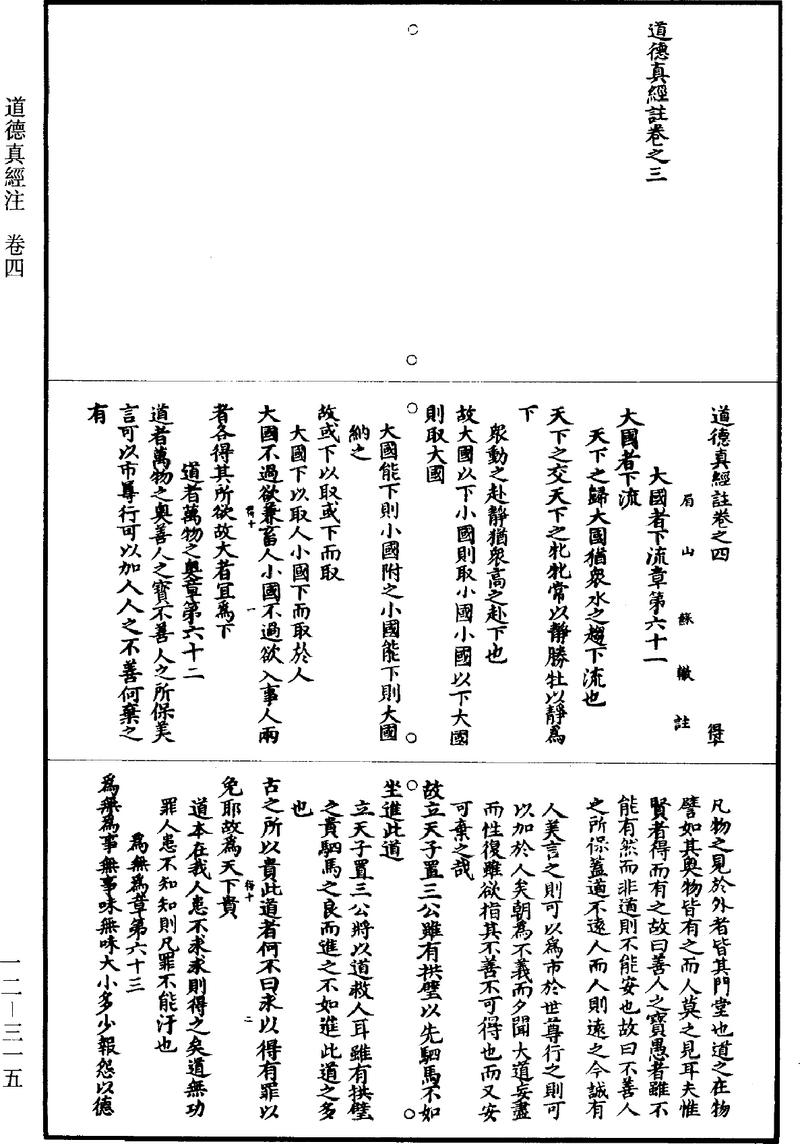 道德真經注　卷四
道德真經註卷之三
道德真經註卷之四
眉山蘇轍註
大國者下流章第六十一
大國者下流
天下之歸大國猶衆水之趨下流也
天下之交天下之牝牝常以靜勝牡以靜爲
下
衆動之赴靜猶衆高之赴下也
故大國以下小國則取小國小國以下大國
則取大國
大國能下則小國附之小國能下則大國
納之
故或下以取或下而取
大國下以取人小國下而取於人
大國不過欲兼畜人小國不過欲入事人兩
者各得其所欲故大者宜爲下
道者萬物之奧章第六十二
道者萬物之奧善人之寶不善人之所保美
言可以市尊行可以加人人之不善何棄之
有
凡物之見於外者皆其門堂也道之在物
譬如其奧物皆有之而人莫之見耳夫惟
賢者得而有之故曰善人之寶愚者雖不
能有然而非道則不能安也故曰不善人
之所保蓋道不遠人而人則遠之今誠有
人美言之則可以爲市於世尊行之則可
以加於人矣朝爲不義而夕聞大道妄盡
而性復雖欲指其不善不可得也而又安
可棄之哉
故立天子置三公雖有拱璧以先駟馬不如
坐進此道
立天子置三公將以道救人耳雖有拱璧
之貴駟馬之良而進之不如進此道之多
也
古之所以貴此道者何不曰求以得有罪以
免耶故爲天下貴
道本在我人患不求求則得之矣道無功
罪人患不知知則凡罪不能汙也
爲無爲章第六十三
爲無爲事無事味無味大小多少報怨以德
一二—三一五